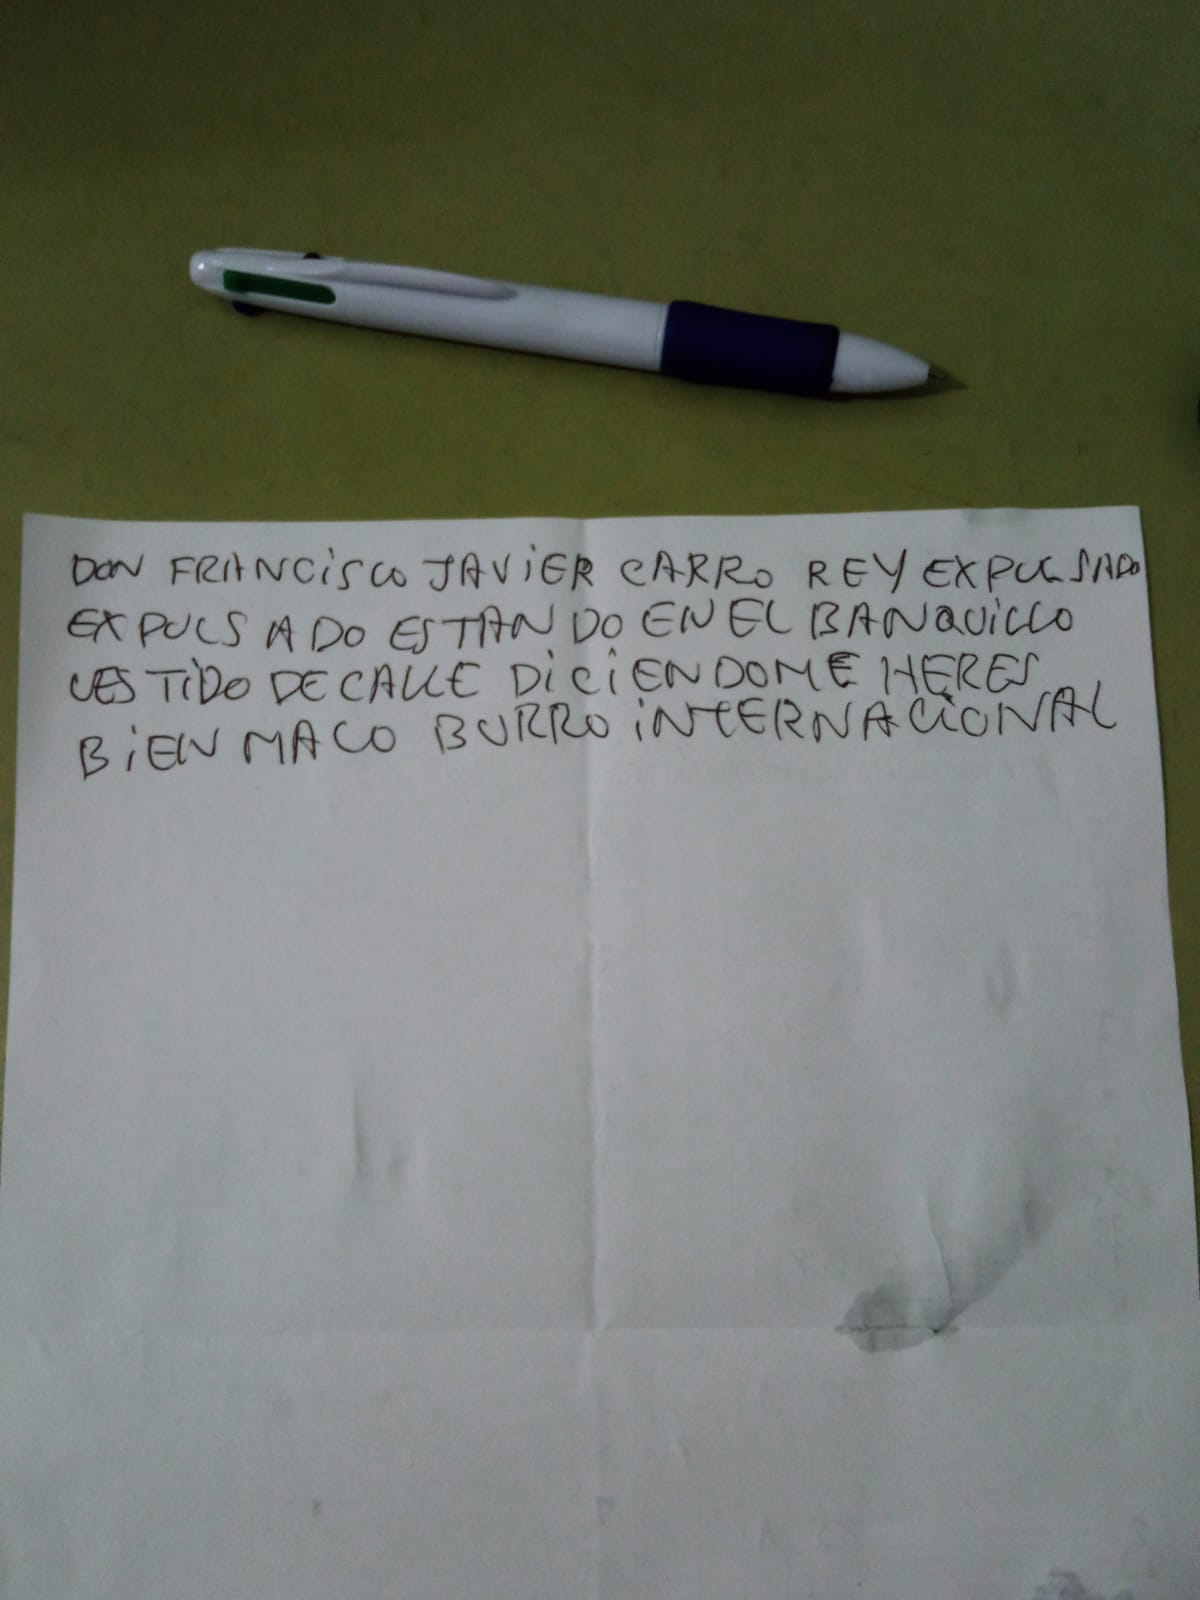 DON FRANCISCO JAVIER CARRO REY EXPULSADO
EXPULSADO ESTANDO EN EL BANQUILLO
VESTIDO DE CALLE DICIENDOME HERES
BIEN MALO BURRO INTERNACIONAL